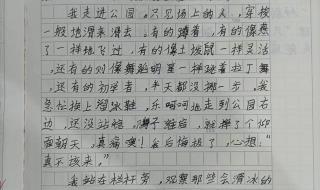 我走进公园。只见场上的人，穿梭
一般地滑来滑去，有的蹲着，有的像燕
子一样地飞过，有的像土拨鼠一样灵活
，还有的则像舞蹈明星一样跳着拉丁舞
，还有的初学者，半天都没挪一步。我
急忙换上溜冰鞋，乐呵呵地走到公园右
边，还没站稳，滑了鞋后，就摔了个仰
面朝天，真痛啊！我后悔极了，心想："
真不该来。"
我站在栏杆旁，观察那些会滑冰的